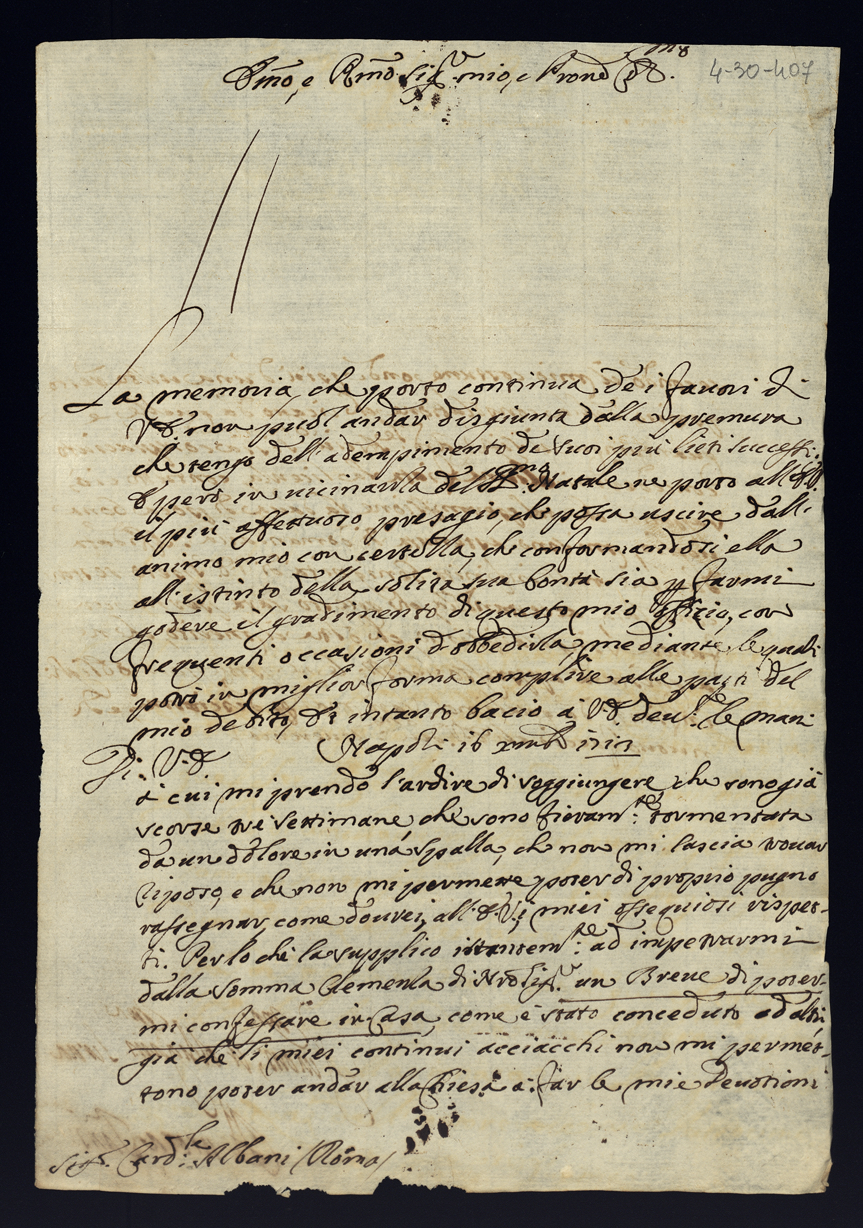 Emo, e Rmo Sig.r mio, e Prone
4-30-407
La memoria, che porto continua de i favori di
V.E. non può andar disgiunta dalla premura
che tengo dell'adempimento de suoi più lieti successi.
E però in vicinanza del SSmo Natale ne porto all'E.V.
il più affettuoso presagio, che possa uscire dall'
animo mio con certezza, che conformandosi ella
all'istinto della solita sua bontà sia p farmi
godere il gradimento di questo mio officio, con
frequenti occasioni d'obbedirla, mediante le quali
potrò in miglior forma complire alle parti del
mio debito, Et intanto bacio à V.E. deu.te le mani
Napoli 16 xmbre
Di V.E.
à cui mi prendo l'ardire di soggiungere, che sono già
scorse tre settimane che sono fieram.te tormentata
da un dolore in una spalla, che non mi lascia trouar
riposo, e che non mi permette poter di proprio pugno
rassegnar, come dourei, all'E.V. i miei ossequiosi rispet-
ti. Perlo chè la supplico istantem.te ad impetrarmi
dalla somma Clemenza di Nro Sig.re un Breue di poter-
mi confessare in Casa, come è stato conceduto ad altri
già che li miei continui acciacchi non mi permet-
tono poter andar alla Chiesa à far le mie Deuotioni
Sig.r Card.le Albani (Roma)